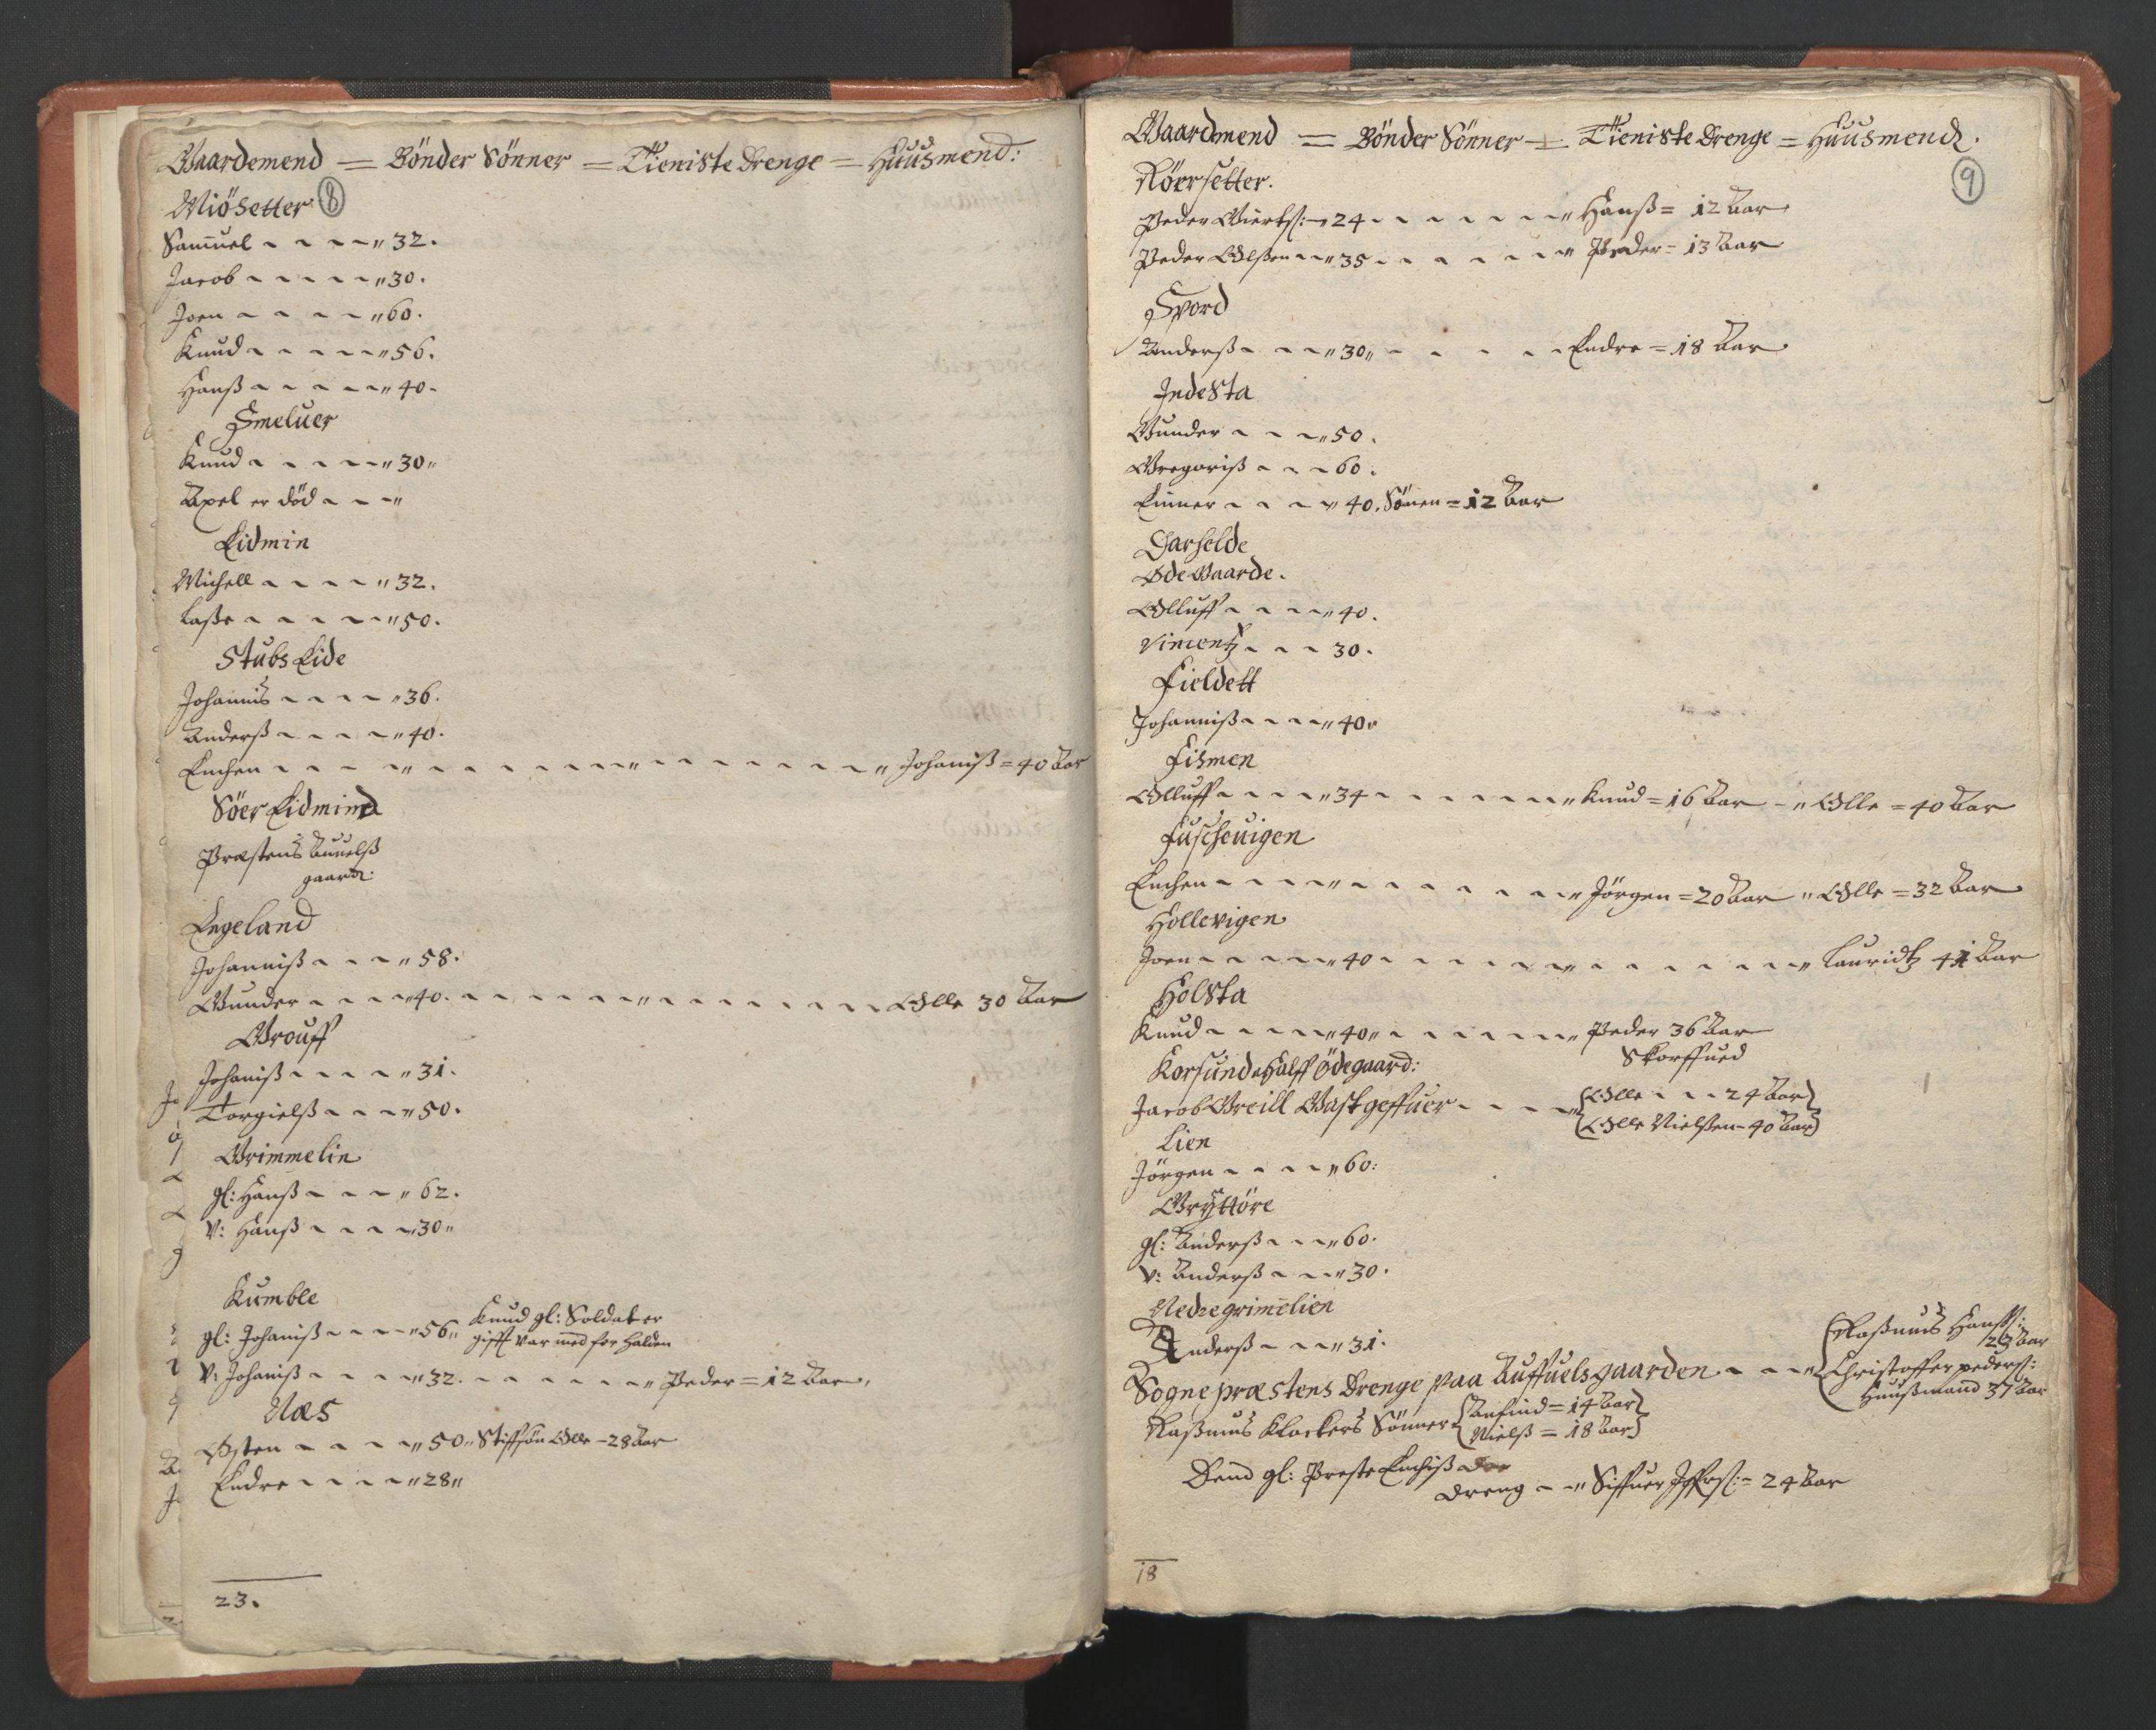 Gaardemend = Bönder Sönner = Tieniste drenge = Huusmend:
Miösetter 8
Samuel - - - - " 32.
Jacob - - - - - " 30.
Joen - - - - " 60.
Knud - - - - - " 56.
Hanß - - - - - " 40.
Smeluer
Knud - - - - - " 30 "
Axel er död - - - "
Eidmin
Michell - - - - " 32.
Laße - - - - - " 50.
Stubs Eide
Johannis - - - - " 36.
Anderß - - - - " 40.
Enchen - - - - " - - - - - - " - - - - - - - " Johaniß = 40 Aar
Söer Eidmind
Præstens Auuelß
gaard:
Legeland
Johanniß - - - " 58.
Gunder - - - - " 40. - - - - - - " - - - - - - - Olle 30 Aar
Grouff
Johaniß - - - - " 31.
Torgielß - - - " 50.
Grimmelin
gl: Hanß - - - " 62.
V: Hanß - - - - " 30 "
Kumble
gl: Johaniß - - - - " 56 " Knud gl: Soldat er
gifft var med for Halden
V: Johaniß - - - - " 32. - - - - - - " Peder = 12 Aar.
Næs
Østen - - - - " 50 " Stiffsön Olle - 28 Aar
Endre - - - - " 28 "
23.
Gaardmend = Bönder Sönner = Tieniste Drenge = Huusmend.
9
Röersetter.
Peder - " 24 - - - - - - " Hanß = 12 Aar
Peder Olßen - - " 35 - - - - - - " Peder - 13 Aar
Fyord
Anderß - - - " 30 " - - - - - Endre = 18 Aar
Indesta
Gunder - - - " 50.
Gregoriß - - - 60.
Einner - - - " 40. Sönen = 12 Aar
Øde Gaarde.
Olluff - - - - " 40.
Vincentz - - - 30.
Fieldett
Johanniß - - - - " 40 "
Fismen
Olluff - - - - " 34 - - - - - - " Knud = 16 Aar - " Olle = 40 Aar
Fuscheuigen
Enchen - - - - " - - - - - - " Jörgen = 20 Aar " Olle = 32 Aar
Hollevigen
Joen - - - - - " 40 - - - - - - " - - - - - - " Lauridtz 41 Aar
Holsta
Knud - - - - - " 40 " - - - - - - " Peder 36 Aar
Skorffued
Korsund Halff Ødegaard:
Jacob Greill Gastgeffuer - - - - " Olle - - - 24 Aar
Olle Nielßen - 40 Aar
Lien
Jörgen - - - - " 60:
Gryttöre
gl: Anderß - - - " 60.
V: Anderß - - - " 30.
Nedregrimelien
Anderß - - - " 31.
Sogne præstens Drenge paa Auffuelsgaarden - - - " Raßmus Hanß:
23 Aar
Christoffer peders:
Huußmand 37 Aar
Raßmus Klockers Sönner Anfind = 14 Aar
Nielß = 18 Aar
Dend gl: Preste Enchiß
dreng - - " Siffuer = 24 Aar
18